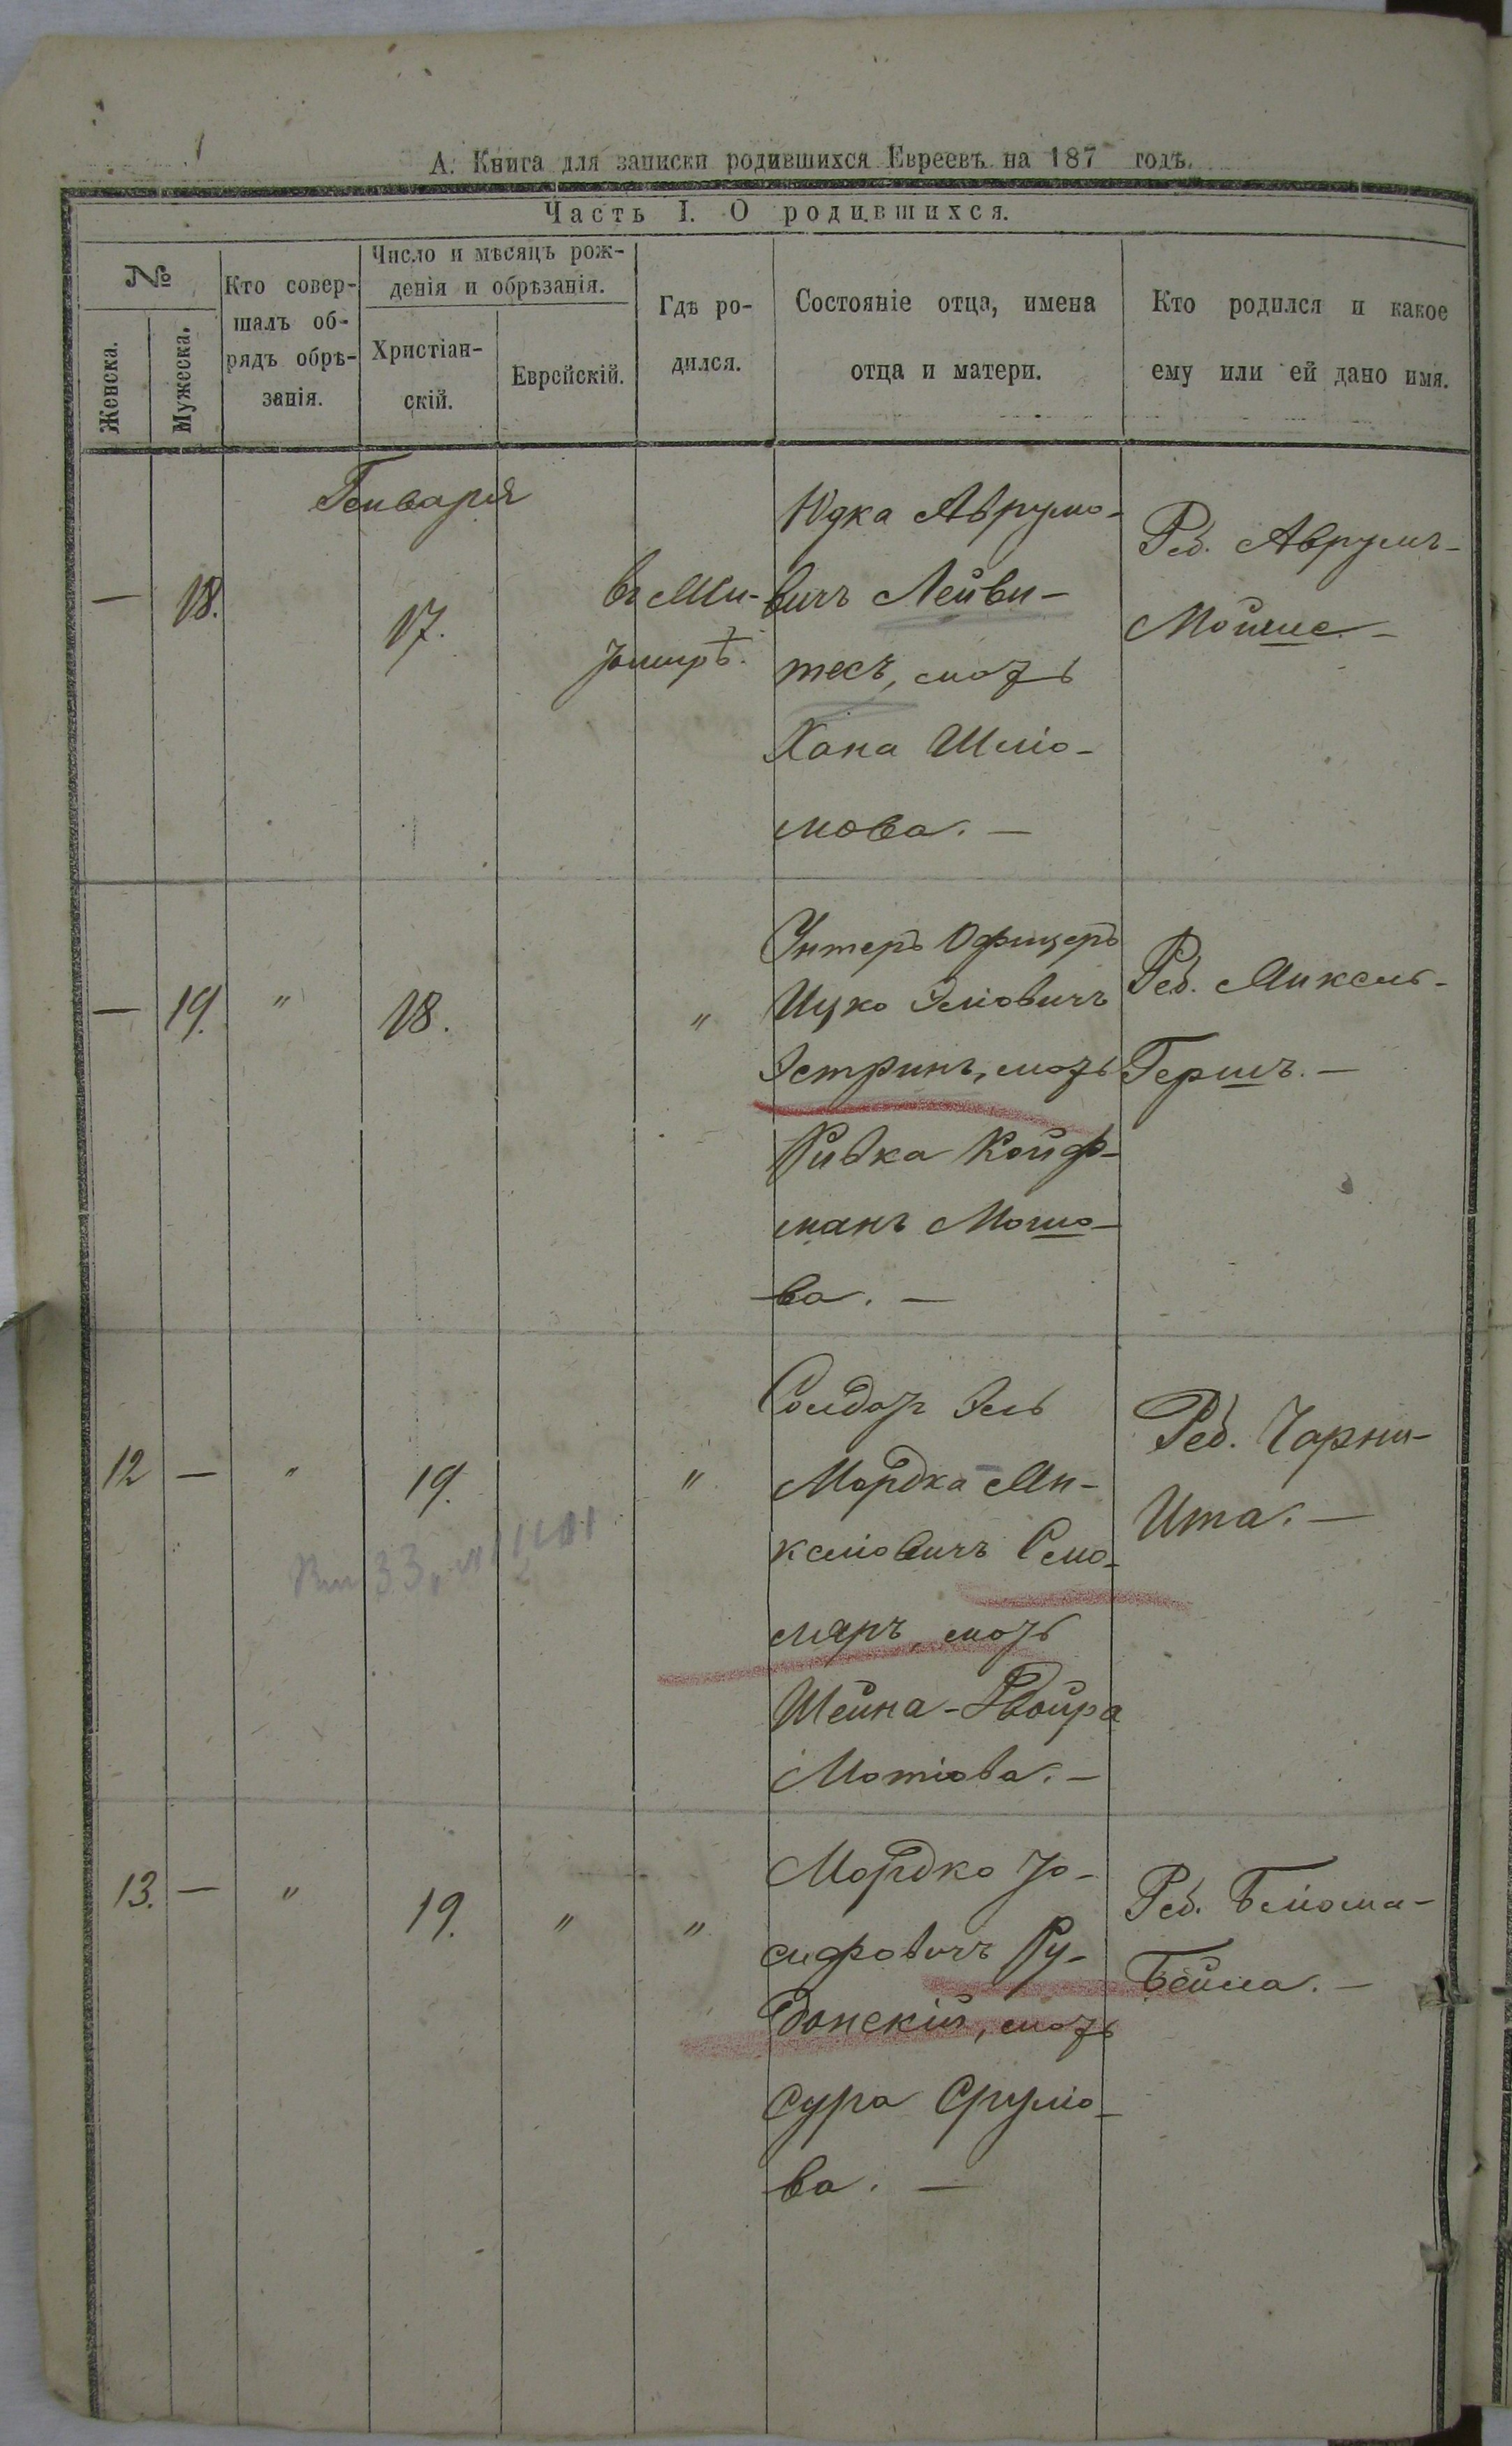 А. Книга для записки родившихся Евреевъ на 187 годъ.
Часть I. О родившихся.
№
Женска.
Мужеска.
Кто совер-
шалъ об-
рядъ обрѣ-
занія.
Число и мѣсяцъ рож-
денія и обрѣзанія.
Христіан-
скій.
Еврейскій.
Гдѣ ро-
дился.
Состояніе отца, имена
отца и матери.
Кто родился и какое
ему или ей дано имя.
Генваря
— 18. 17.
въ Жи-
томирѣ.
Юдка Аврумо-
вичъ Лейви-
тесъ, мать
Хана Шліо-
мова. —
Реб. Аврумъ-
Мойше. —
— 19. " 18. "
Унтеръ Офицеръ
Ицко Эліовичъ
Эстринъ, мать
Ривка Койф-
манъ Мошо-
ва. —
Реб. Михель-
Гершъ. —
12 — " 19. "
Солдат Эль
Мордка Ми-
хеліовичъ
мать
Шейна-Двойра
Мотіова. —
Реб. Чарни-
Ита. —
13. — " 19. " "
Мордко Іо-
сифовичъ Ру-
данскій, мать
Сура Сруліо-
ва. —
Реб.
Бейла. —